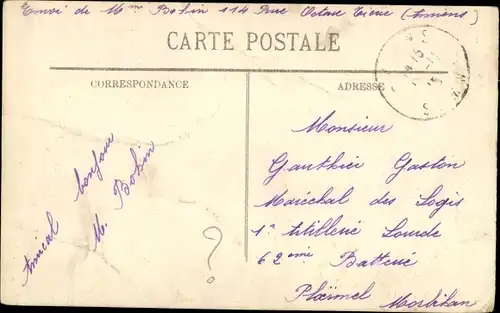 Envoi de Mme Bohin 114 Rue Octave Tierce (Amiens)
CARTE POSTALE
CORRESPONDANCE
ADRESSE
Amical bonjour
M. Bohin
?
Monsieur
Gauthier Gaston
Maréchal des Logis
1e Artillerie Lourde
62eme Batterie
Ploërmel Morbihan